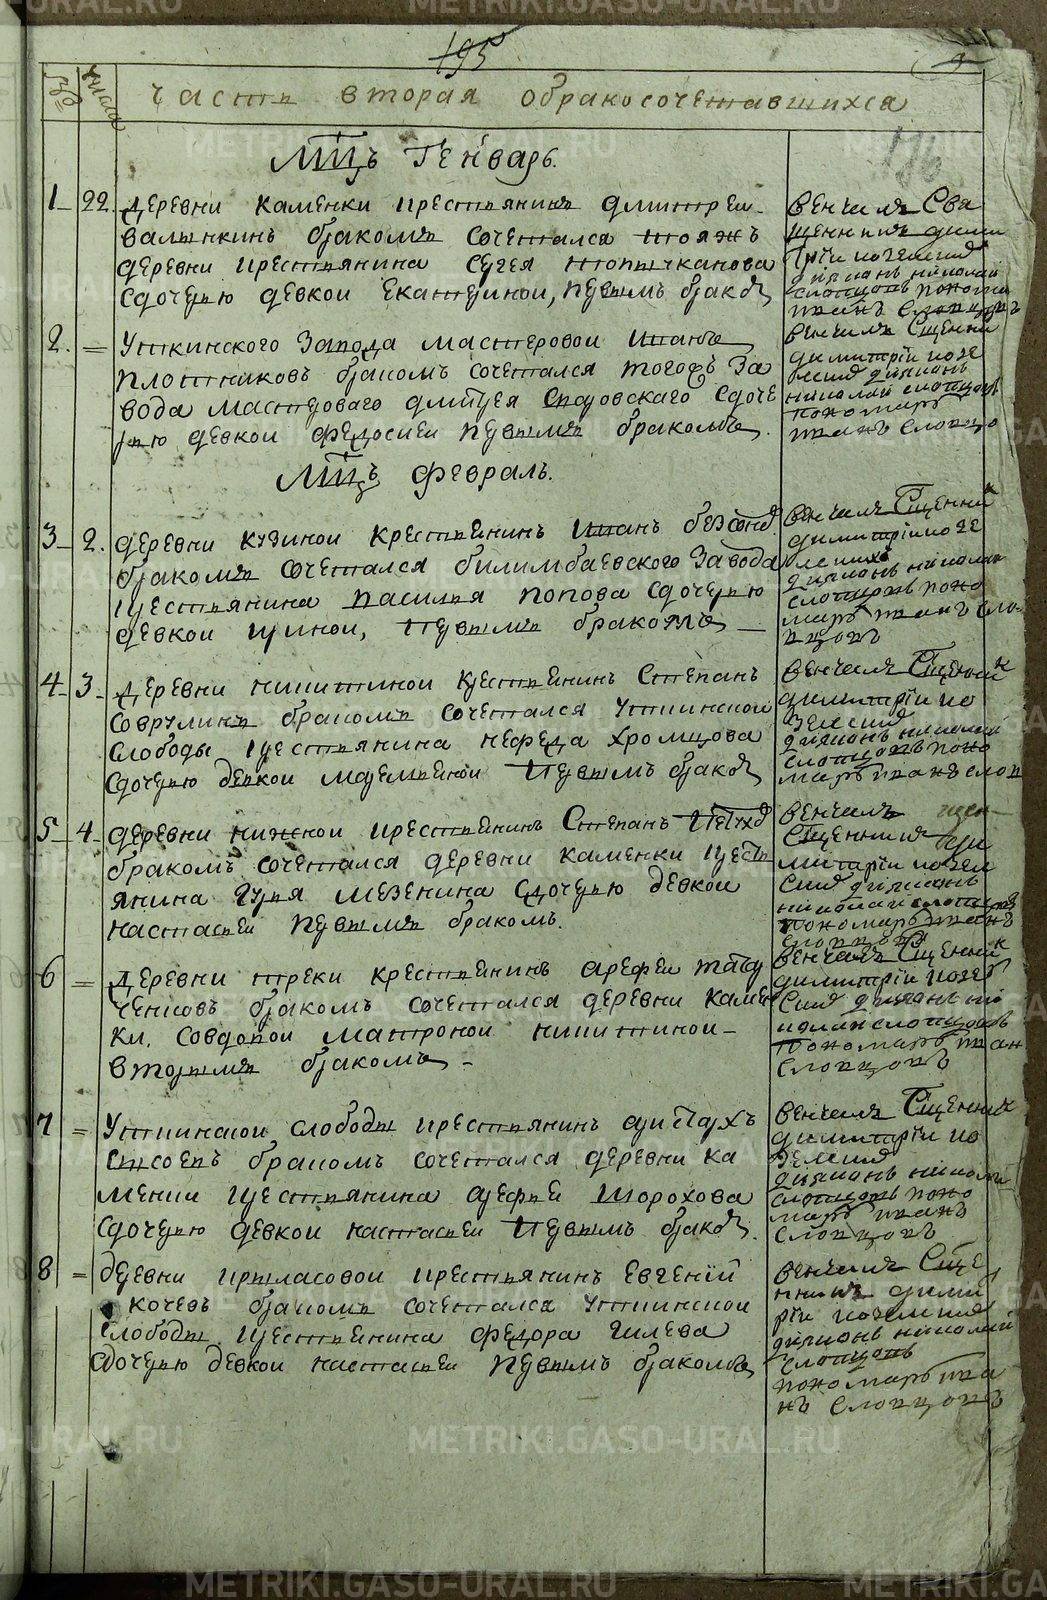 195
часть вторая обракосочетавшихся
мцъ генварь.
1 22. деревни каменки крестьянинъ дмитреи
валынкинъ бракомъ сочетался тояжъ
деревни крестьянина сергея
сдочерью девкои екатериною, первымъ бракомъ
венчалъ свя
щенникъ дими
трiи
дияконъ николаи
словцовъ поно
иванъ словцовъ
2. = уткинского завода мастеровои иванъ
плотниковъ бракомъ сочетался тогожъ за
вода мастероваго дмитрея сдоче
рью девкои федосиеи первымъ бракомъ
венчалъ сщенни
димитрiи позе
дияконъ
николаи словцовъ
пономарь
иванъ словцо
мцъ февраль.
3 2. деревни кузинои крестьянинъ иванъ
бракомъ сочетался билимбаевского завода
крестьянина василия попова сдочерью
девкои ириною, первымъ бракомъ
венчалъ сщенник
димитрiи позе
дияконъ николаи
словцовъ поно
марь иванъ сло
вцовъ
4 3 деревни никитинои крестьянинъ степанъ
соврулинъ бракомъ сочетался уткинскои
слободы крестьянина нефеда хромцова
сдочерью девкои маремьянои первымъ бракомъ
венчалъ сщенник
димитрiи по
дияконъ николаи
словцовъ поно
марь иванъ словц
5 4 деревни нижнои крестьянинъ степанъ
бракомъ сочетался деревни каменки крест
янина гурия мезенина сдочерью девкои
настасьеи первымъ бракомъ.
венчалъ
сщенникъ ди
митрiи позем
дияконъ
николаи словцовъ
пономарь иванъ
словцовъ
6 = деревни треки крестьянинъ арефеи
бракомъ сочетался деревни камен
ки, совдовои матроной никитинои
вторымъ бракомъ
венчалъ сщенник
димитрiи позе
дияконъ ни
колаи словцовъ
пономарь иван
словцовъ
7 = уткинскои слободы крестьянинъ
сысоевъ бракомъ сочетался деревни ка
менки крестьянина шорохова
сдочерью девкои настасьеи первымъ бракомъ.
венчалъ сщенник
димитрiи по
дияконъ николаи
словцовъ поно
марь иванъ
словцовъ
8 = деревни крыласовои крестьянинъ евгенiй
кочевъ бракомъ сочетался уткинскои
слободы крестьянина федора гилева
сдочерью девкои настасьеи первымъ бракомъ
венчалъ сще
нникъ дими
трiи
дияконъ николаи
словцовъ
пономарь ива
нъ словцовъ
METRIKI.GASO-URAL.RU